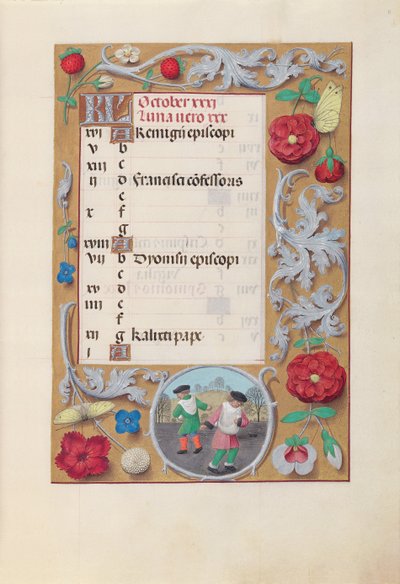 KL October xxxi
Luna vero xxx
xvi A Remigii episcopi
v b
xiii c
ii d Francisci cōfessoris
e
x f
g
xviii A
vii b Dyonisii episcopi
c
xv d
iiii e
f
xii g Kalixti pape
i A